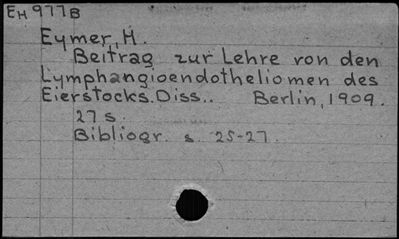 EH977B
Eymer, H.
Beitrag zur Lehre von den
Lymphangioendotheliomen des
Eierstocks. Diss.. Berlin, 1909.
27 s.
Bibliogr. s. 25-27.